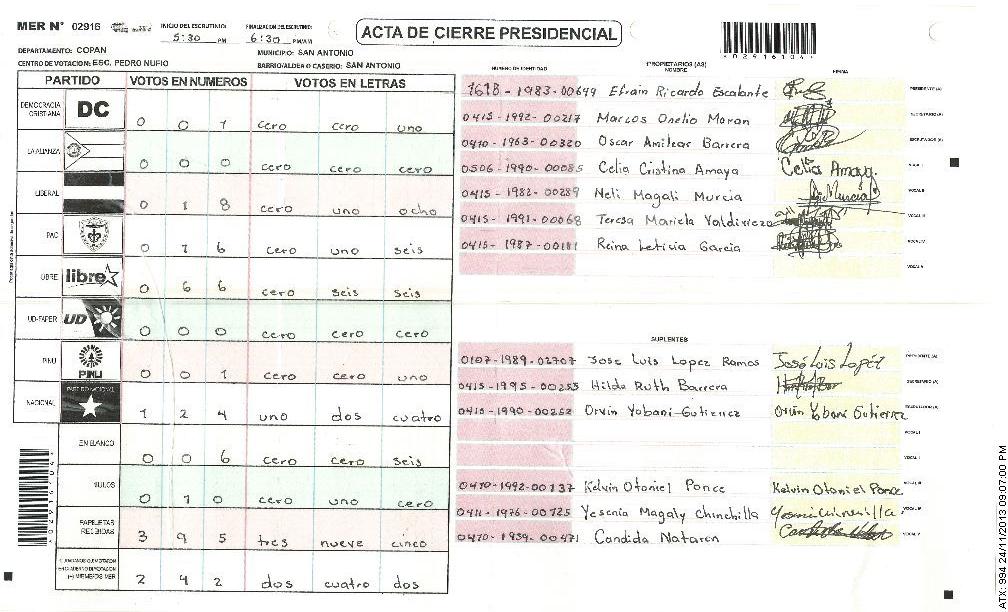 MER N° 02916
INICIO DEL ESCRUTINIO: 5:30 PM
FINALIZACION DEL ESCRUTINIO: 6:30 PM/AM
ACTA DE CIERRE PRESIDENCIAL
*02916104*
DEPARTAMENTO: COPAN
MUNICIPIO: SAN ANTONIO
CENTRO DE VOTACION: ESC. PEDRO NUFIO
BARRIO/ALDEA O CASERIO: SAN ANTONIO
PARTIDO VOTOS EN NUMEROS VOTOS EN LETRAS
DEMOCRACIA CRISTIANA DC 0 0 1 cero cero uno
LA ALIANZA 0 0 0 cero cero cero
LIBERAL 0 1 8 cero uno ocho
PAC 0 1 6 cero uno seis
LIBRE libre 0 6 6 cero seis seis
UD-FAPER UD 0 0 0 cero cero cero
PINU PINU 0 0 1 cero cero uno
NACIONAL PARTIDO NACIONAL 1 2 4 uno dos cuatro
EN BLANCO 0 0 6 cero cero seis
NULOS 0 1 0 cero uno cero
PAPELETAS RECIBIDAS 3 9 5 tres nueve cinco
(+) MIEMBROS MER 2 4 2 dos cuatro dos
NUMERO DE IDENTIDAD PROPIETARIOS (AS) NOMBRE FIRMA
1618-1983-00649 Efrain Ricardo Escalante PRESIDENTE (A)
0415-1992-00217 Marcos Onelio Moran SECRETARIO (A)
0410-1963-00320 Oscar Amilcar Barrera ESCRUTADOR (A)
0506-1990-00085 Celia Cristina Amaya Celia Amaya. VOCAL I
0415-1982-00289 Neli Magali Murcia Murcia VOCAL II
0415-1991-00068 Teresa Mariela Valdiviezo VOCAL III
0415-1987-00181 Reina Leticia Garcia VOCAL IV
VOCAL V
SUPLENTES
0107-1989-02707 Jose Luis Lopez Ramos José Luis López PRESIDENTE (A)
0415-1995-00255 Hilda Ruth Barrera SECRETARIO (A)
0415-1990-00252 Orvin Yobani Gutierrez Orvin Yobani Gutierrez ESCRUTADOR (A)
VOCAL I
VOCAL II
0410-1992-00137 Kelvin Otoniel Ponce Kelvin Otoniel Ponce VOCAL III
0411-1976-00725 Yesenia Magaly Chinchilla VOCAL IV
0410-1959-00471 Candida Nataren VOCAL V
*02916104*
ATX: 994 24/11/2013 09:07:00 PM